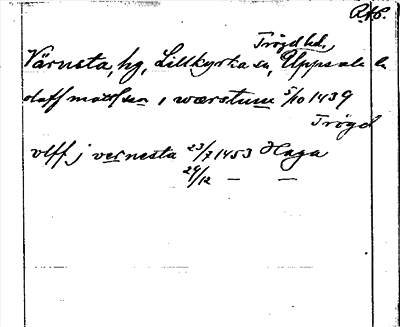 RAP.
Trögd hd.
Värnsta, hg, Lillkyrka sn, Uppsala l.
daff matssen i wærstum 5/10 1439
Trögd
vlff j vernesta 23/7 1453 Haga
29/12 — —